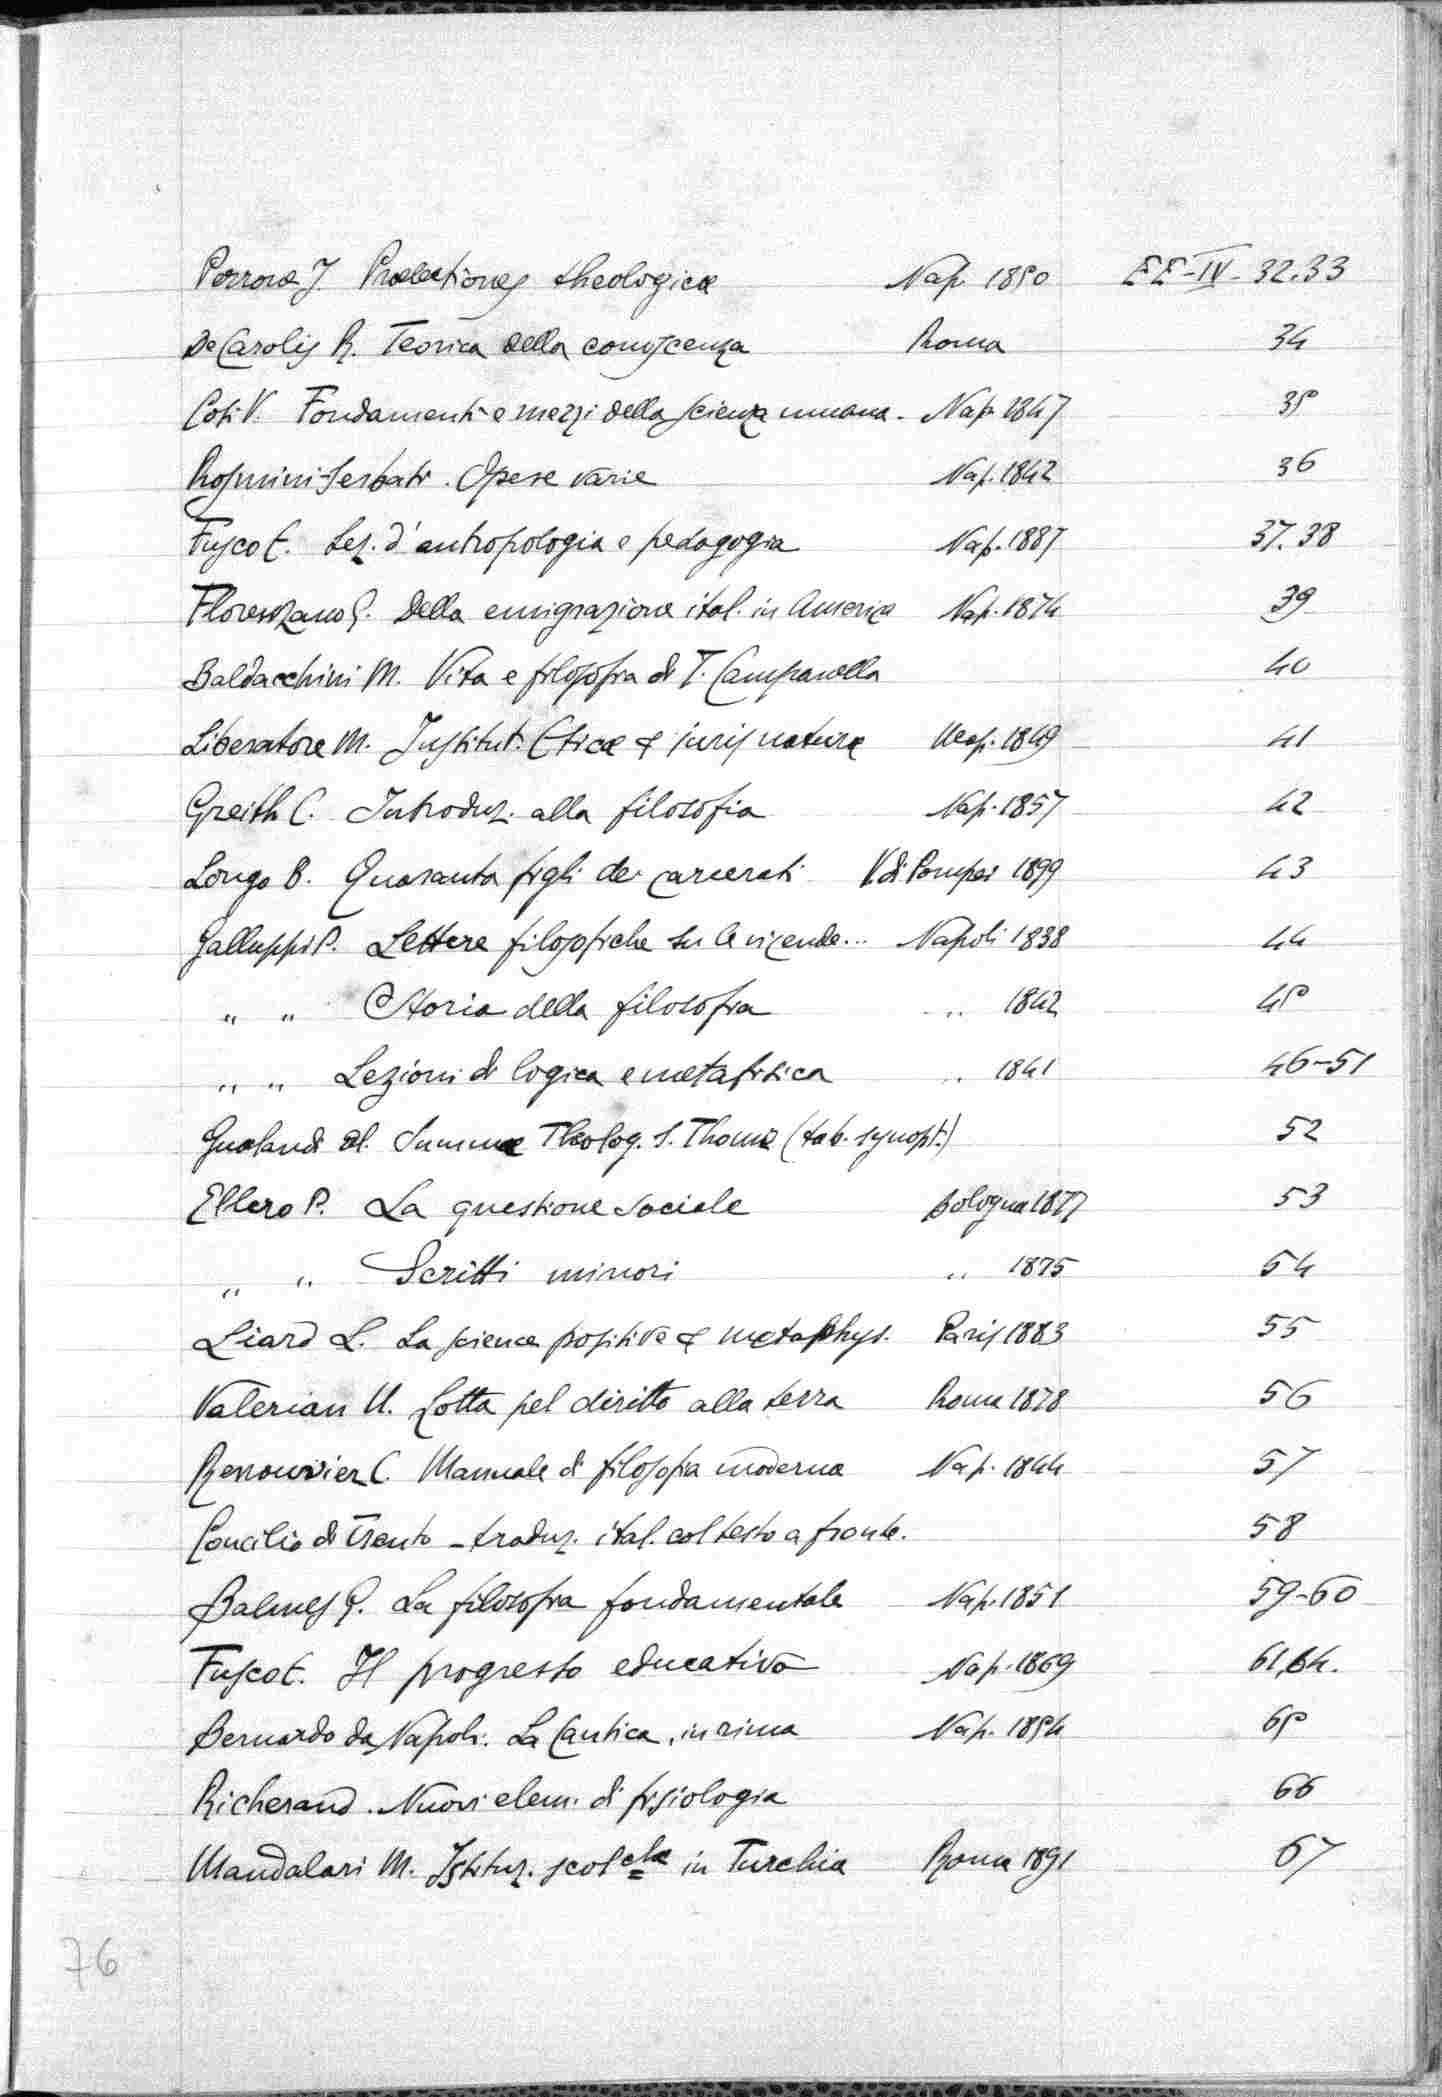 Perrone J. Praelectiones theologicae Nap. 1850 EE-IV-32.33
De Carolis R. Teorica della conoscenza Roma 34
Coti V. Fondamenti e mezzi della scienza umana. Nap. 1847 35
Rosmini-Serbati. Opere varie Nap. 1842 36
Fusco E. Lez. d'antropologia e pedagogia Nap. 1887 37.38
Florenzano G. Della emigrazione ital. in America Nap. 1874 39
Baldacchini M. Vita e filosofia di T. Campanella 40
Liberatore M. Institut. Ethicae & juris naturae Neap. 1849 41
Greith C. Introduz. alla filosofia Nap. 1857 42
Longo B. Quaranta figli dei carcerati V. di Pompei 1899 43
Galluppi P. Lettere filosofiche su le vicende... Napoli 1838 44
" " Storia della filosofia " 1842 45
" " Lezioni di logica e metafisica " 1841 46-51
Gualandi Al. Summae Theolog. S. Thomae (tab. synopt.) 52
Ellero P. La questione sociale Bologna 1877 53
" " Scritti minori " 1875 54
Liard L. La science positive & metaphys. Paris 1883 55
Valeriani U. Lotta pel diritto alla terra Roma 1878 56
Renouvier C. Manuale di filosofia moderna Nap. 1844 57
Concilio di Trento - traduz. ital. col testo a fronte. 58
Balmes G. La filosofia fondamentale Nap. 1851 59-60
Fusco E. Il progresso educativo Nap. 1869 61,64.
Bernardo da Napoli. La Cantica, in rima Nap. 1854 65
Richerand. Nuovi elem. di fisiologia 66
Mandalari M. Istituz. scol.che in Turchia Roma 1891 67
76